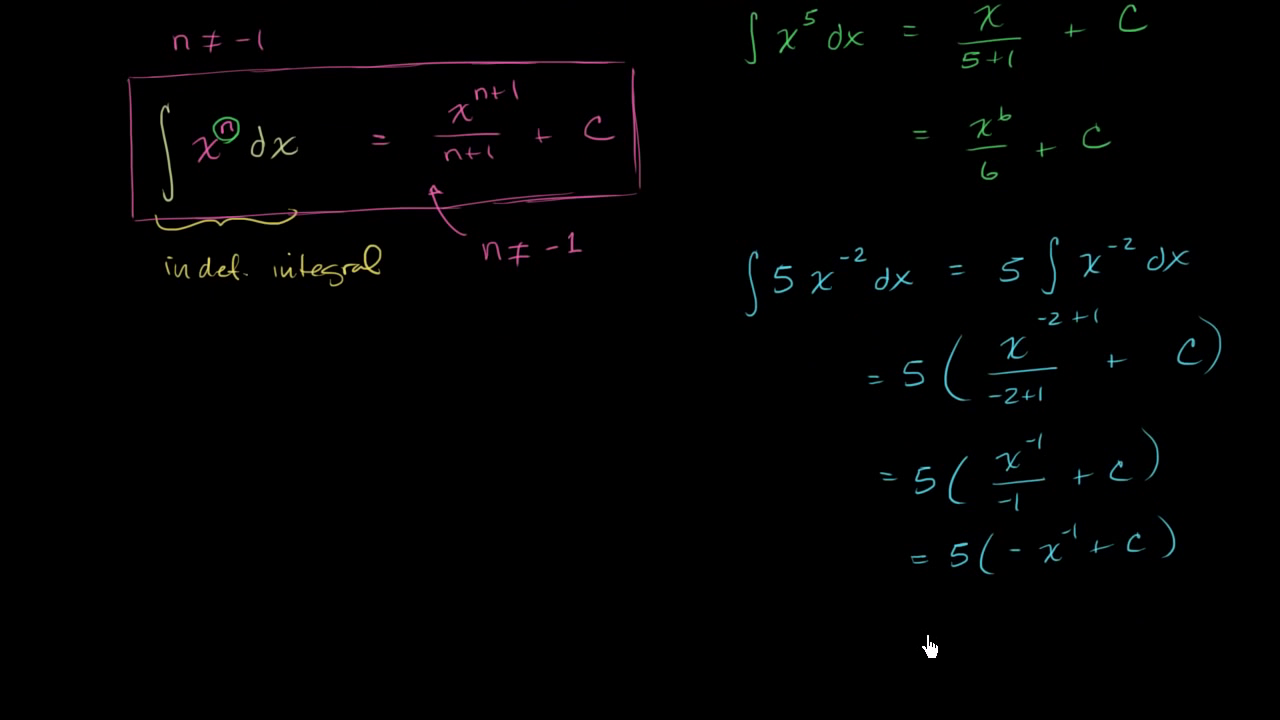 n ≠ -1
∫ xⁿ dx = xⁿ⁺¹/n+1 + C
n ≠ -1
indef. integral
∫ x⁵ dx = x/5+1 + C
= x⁶/6 + C
∫ 5 x⁻² dx = 5 ∫ x⁻² dx
= 5 ( x⁻²⁺¹/-2+1 + C )
= 5 ( x⁻¹/-1 + C )
= 5 ( - x⁻¹ + C )